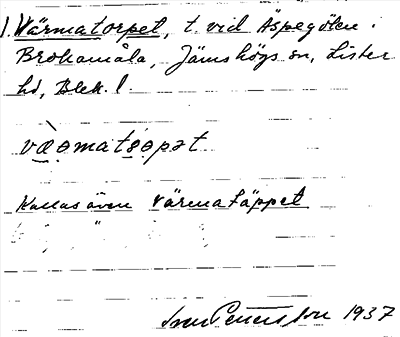 1. Värmatorpet, t. vid Äspegölen i
Brokamåla, Jämshögs sn, Lister
hd, Blek. l.
Kallas även Värmatäppet
Petersson 1937